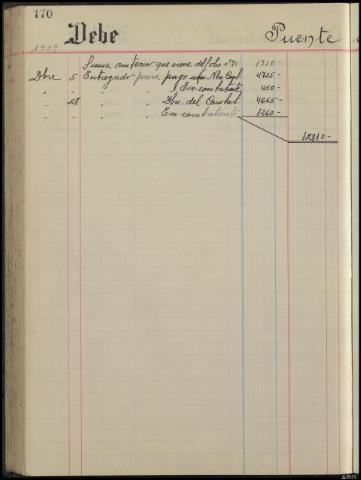 170
Debe Puente
1939
Suma anterior que viene del folio nº 70 1710-
Dbre 5 Entregado para pago 4725-
" " " " Ex-combatente 450-
" 28 " " " Dbre. del Combat. 4665-
" " " " Ex-combatiente 1260-
12810-